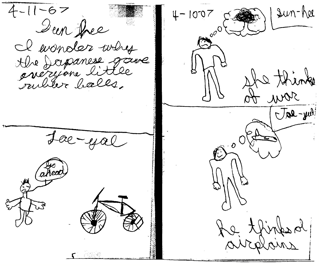 4-11-67
Sun hee
I wonder why
the Japanese gave
everyone little
rubber balls.
Tae-yul
go
ahead
4-10-07
Sun-hee
she thinks
of war
Tae-yul
he thinks of
airplains